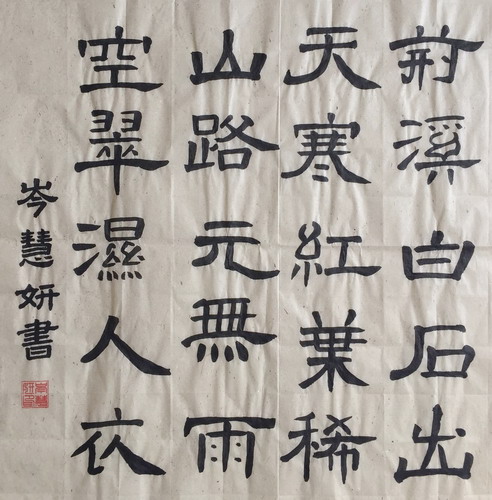 荊溪白石出
天寒紅葉稀
山路元無雨
空翠濕人衣
岑慧妍書